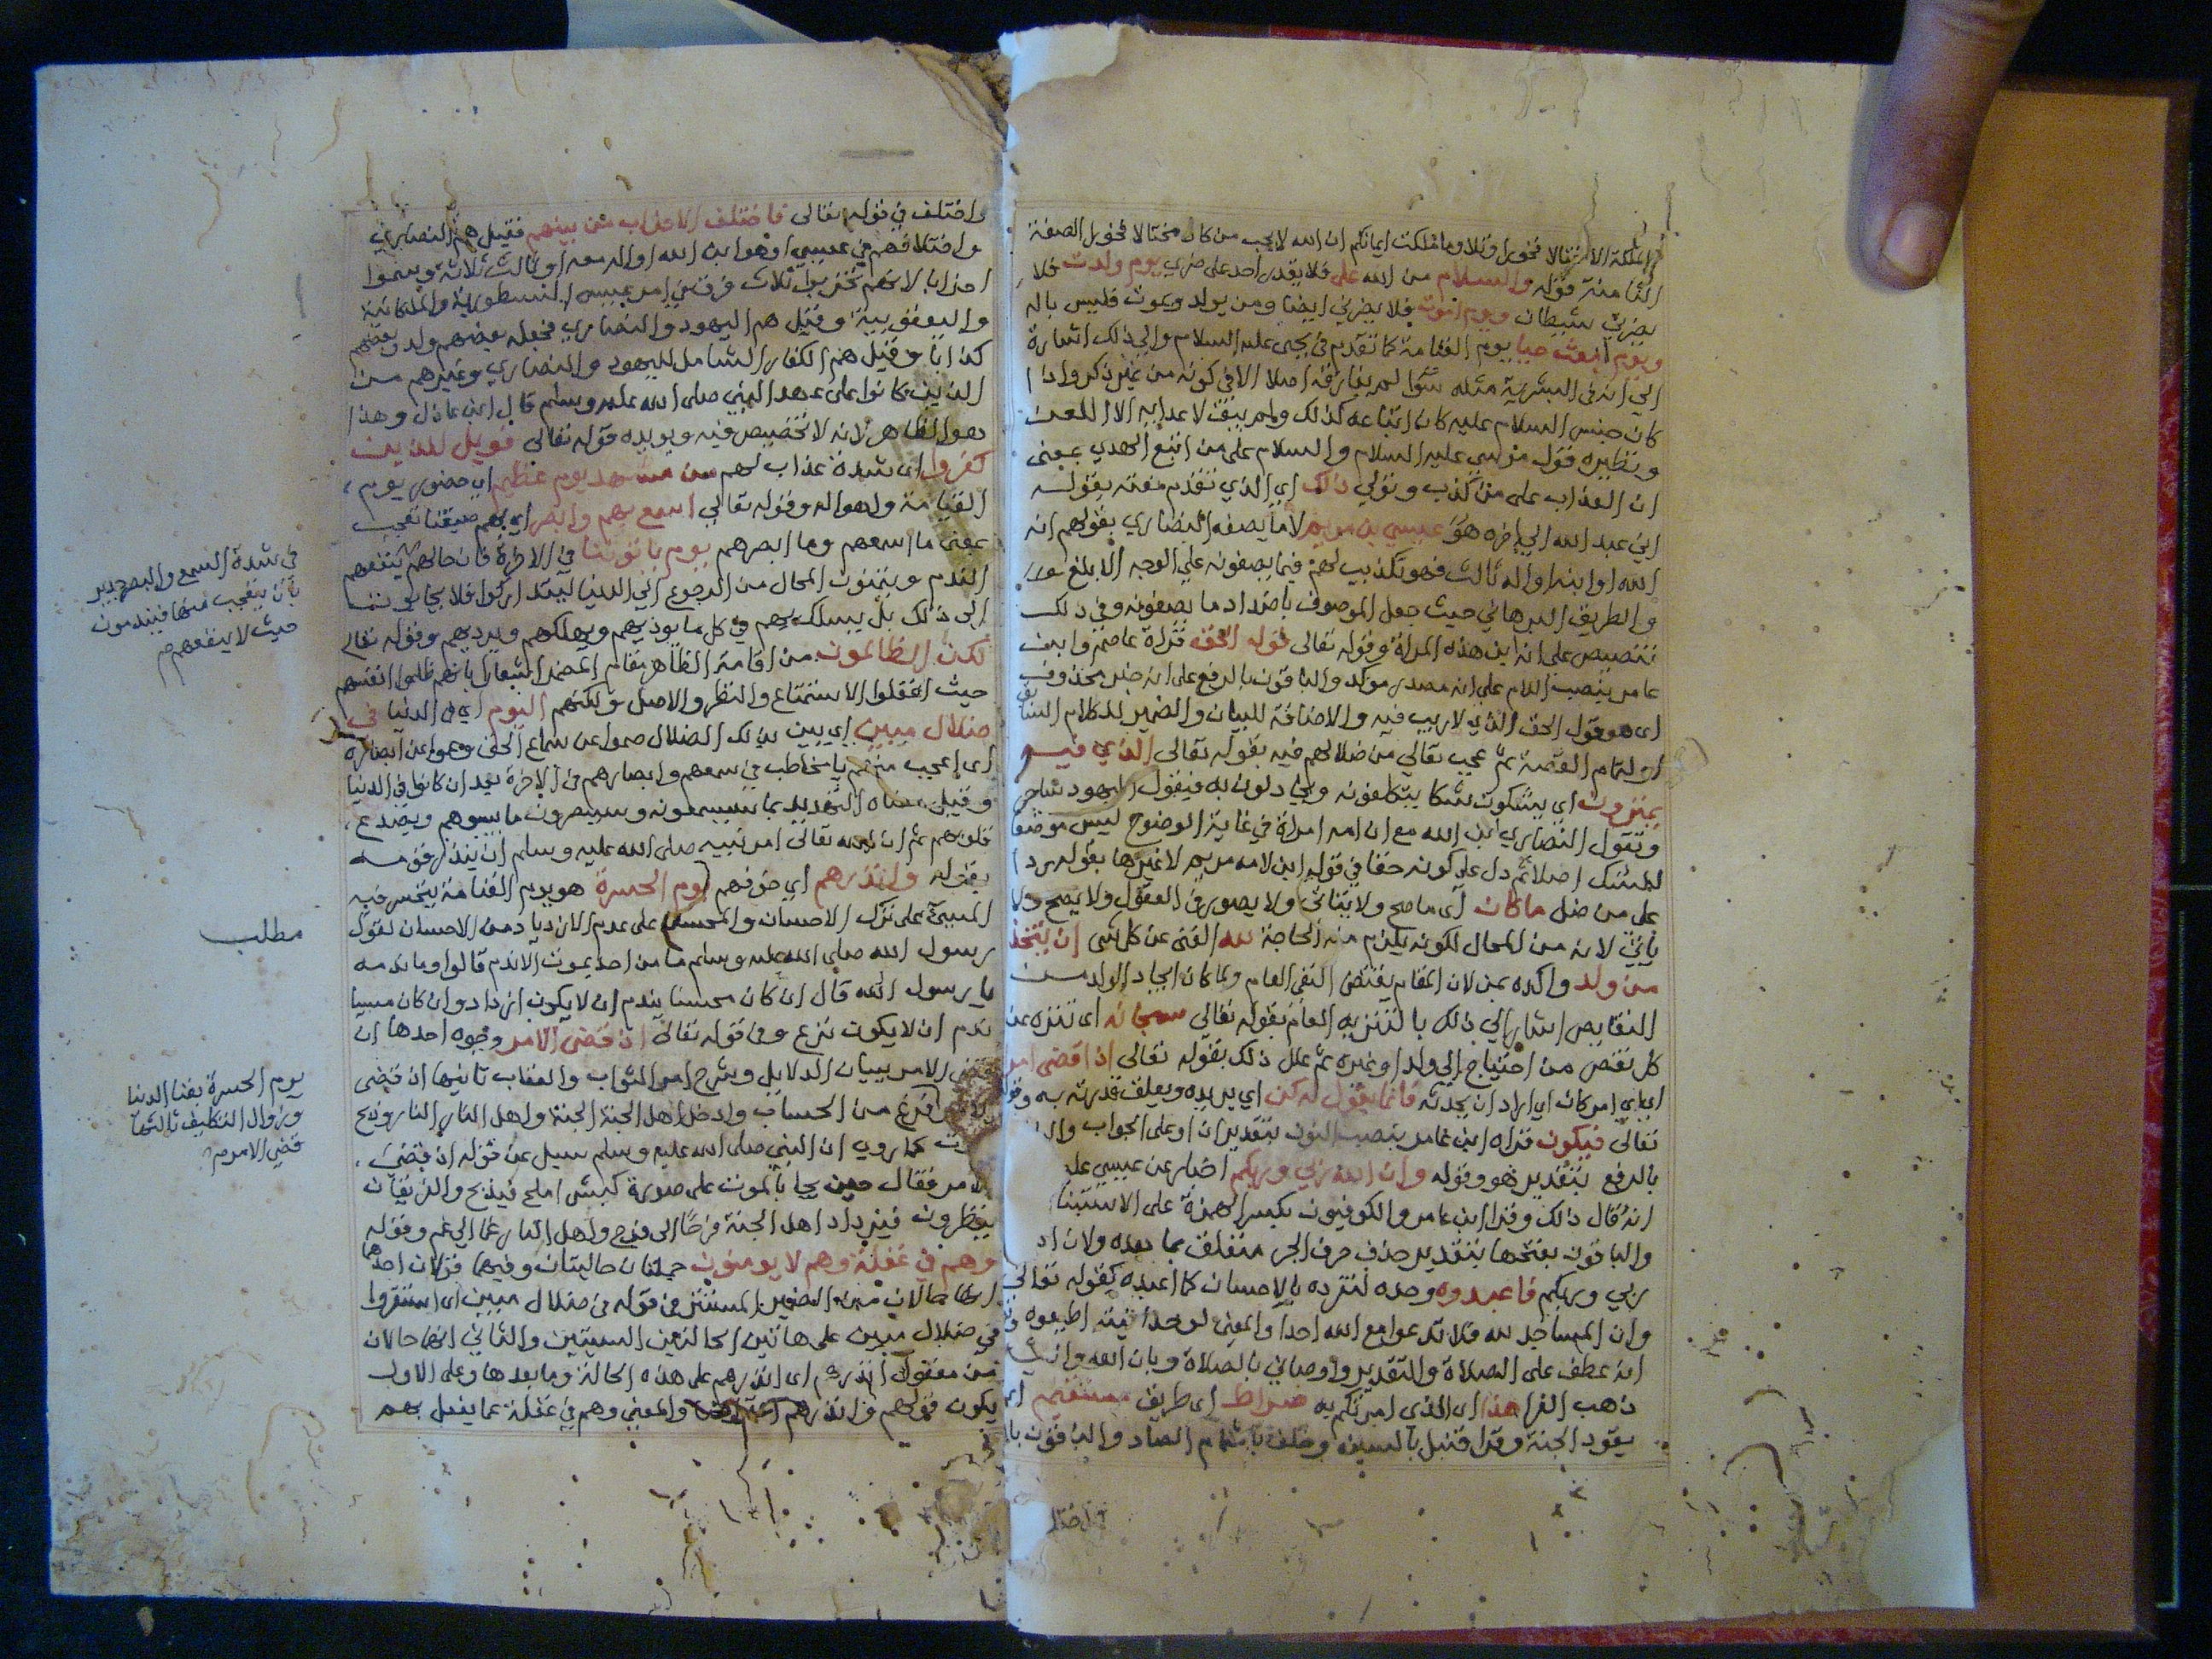 الملكة الا مختالا فخورا وتلا وما ملكت ايمانكم ان الله لا يحب من كان مختالا فخورا الصفة
الثامنة قوله والسلام من الله علي فلا يقدر احد على ضري يوم ولدت فلا
يضرني شيطان ويوم اموت فلا يضرني ايضا ومن يولد ويموت فليس باله
ويوم ابعث حيا يوم القيامة كما تقدم في يحيى عليه السلام والي ذلك اشارة
الي انه في البشرية مثله سوا لم يفارقه اصلا الا في كونه من غير ذكر واذا
كان جنس السلام عليه كان اتباعه كذلك ولم يبق لاعدايه الا اللعن
ونظيره قول موسي عليه السلام والسلام على من اتبع الهدي بمعنى
ان العذاب على من كذب وتولي ذلك اي الذي تقدم نعته بقوله
اني عبد الله الي اخره هو عيسي بن مريم لا ما يصفه النصاري بقولهم انه
الله او ابنه او اله ثالث فهو تكذيب لهم فيما يصفونه علي الوجه الابلغ
والطريق البرهاني حيث جعل الموصوف باضداد ما يصفونه وفي ذلك
تنصيص على انه ابن هذه المراة وقوله تعالى قول الحق قراه عاصم وابن
عامر بنصب اللام على انه مصدر موكد والباقون بالرفع على انه خبر محذوف
اي هو قول الحق الذي لا ريب فيه والاضافة للبيان والضمير للكلام السابق
او لتمام القصة ثم عجب تعالي من ضلالهم فيه بقوله تعالى الذي فيه
يمترون اي يشكون شكا يتكلفونه ويجادلون به فيقول اليهود ساحر
وتقول النصاري ابن الله مع ان امه امراة في غاية الوضوح ليس موضعا
للشك اصلا ثم دل على كونه حقا في قوله ابن لامه مريم لا غيرها بقوله ردا
على من ضل ما كان اي ما صح ولا يتاتي ولا يصور في العقول ولا يصح ولا
ياتي لانه من المحال لكونه يلزم منه الحاجة لله الغني عن كل شي ان يتخذ
من ولد واكده بمن لان المقام يقتضي النفي العام ولما كان ايجاد الولد من
النقايص اشار الي ذلك بالتنزيه العام بقوله تعالي سبحانه اي تنزه عن
كل نقص من احتياج الي ولد او غيره ثم علل ذلك بقوله تعالي اذا قضى امرا
اي اي امر كان اي اراد ان يحدثه فانما يقول له كن اي يريده ويعلق قدرته به وقوله
تعالى فيكون قراه ابن عامر بنصب النون بتقدير ان او على الجواب
بالرفع بتقدير هو وقوله وان الله ربي وربكم اخبار عن عيسي عليه
انه قال ذلك وقرا ابن عامر والكوفيون بكسر الهمزة على الاستيناف
والباقون بفتحها بتقدير حذف حرف الجر متعلق بما بعده ولان الله
ربي وربكم فاعبدوه وحده لتفرده بالاحسان كما اعبده كقوله تعالى
وان المساجد لله فلا تدعوا مع الله احدا والمعنى لوحدانيته اطيعوه
انه عطف على الصلاة والتقدير واوصاني بالصلاة وبان الله
ذهب الفرا هذا اي الذي امرتكم به صراط اي طريق مستقيم اي
يقود الجنة وقرا قنبل بالسين وخلف باشمام الصاد والباقون
واختلف في قوله تعالى فاختلف الاحزاب من بينهم فقيل هم النصاري
واختلافهم في عيسي اهو ابن الله او اله معه او ثالث ثلاثة وسموا
احزابا لانهم تحزبوا ثلاث فرق في امر عيسى النسطورية والملكانية
واليعقوبية وقيل هم اليهود والنصاري فجعله بعضهم ولد وبعضهم
كذابا وقيل هم الكفار الشامل لليهود والنصاري وغيرهم من
الذين كانوا على عهد النبي صلى الله عليه وسلم قال ابن عادل وهذا
هو الظاهر لانه لا تخصيص فيه ويويده قوله تعالى فويل للذين
كفروا اي شدة عذاب لهم من مشهد يوم عظيم اي حضور يوم
القيامة واهواله وقوله تعالي اسمع بهم وابصر اي بهم صيغتا تعجب
بمعنى ما اسمعهم وما ابصرهم يوم ياتوننا في الاخرة فان حالهم
الندم ويتمنون المحال من الرجوع الي الدنيا ليتداركوا فلا يجابون
الى ذلك بل يسلك بهم في كل ما يوذيهم ويهلكهم ويرديهم وقوله تعالى
لكن الظالمون من اقامة الظاهر مقام المضمر اشعارا بانهم ظلموا انفسهم
حيث اغفلوا الاستماع والنظر والاصل ولكنهم اليوم اي في الدنيا في
ضلال مبين اي بين بذلك الضلال صموا عن سماع الحق وعموا عن ابصاره
اي اعجب منهم يا مخاطب في سمعهم وابصارهم في الاخرة بعد ان كانوا في الدنيا
وقيل معناه التهديد بما سيسمعونه وسيبصرون ما يسوهم ويصدع
قلوبهم ثم ان الله تعالى امر نبيه صلى الله عليه وسلم ان ينذر قومه
بقوله وانذرهم اي خوفهم يوم الحسرة هو يوم القيامة يتحسر فيه
المسيئ على ترك الاحسان والمحسن على عدم الازدياد من الاحسان لقول
رسول الله صلى الله عليه وسلم ما من احد يموت الا ندم قالوا وما ندمه
يا رسول الله قال ان كان محسنا يندم ان لا يكون ازداد وان كان مسيا
ندم ان لا يكون نزع وفي قوله تعالى اذ قضى الامر وجوه احدها ان
قضي الامر ببيان الدلايل وشرح امر الثواب والعقاب ثانيها اذ قضى
فرغ من الحساب وادخل اهل الجنة الجنة واهل النار النار وذبح
كما روي ان النبي صلى الله عليه وسلم سيل عن قوله اذ قضي
الامر فقال حين يجا بالموت على صورة كبش املح فيذبح والفريقان
ينظرون فيزداد اهل الجنة فرحا الى فرح واهل النار غما الي غم وقوله
وهم في غفلة وهم لا يومنون جملتان حاليتان وفيهما قولان احدهما
انهما حالان من الضمير المستتر في قوله في ضلال مبين اي استقروا
في ضلال مبين على هاتين الحالتين السيئتين والثاني انهما حالان
من مفعول انذرهم اي انذرهم على هذه الحالة وما بعدها وعلى الاول
يكون قولهم وانذرهم اعتراضا والمعنى وهم في غفلة عما يفعل بهم
في شدة السمع والبصر جدير
بان يتعجب منهما فيندمون
حيث لا ينفعهم
مطلب
يوم الحسرة بفنا الدنيا
وزوال التكليف ثالثها
قضي الامر